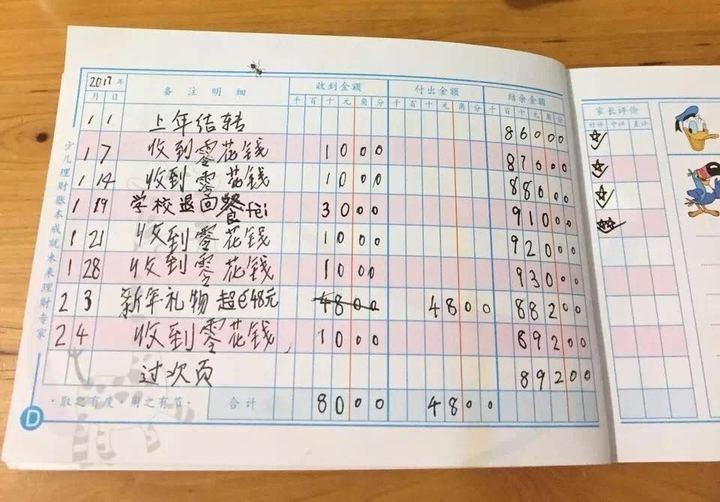 2017年 备注明细 收到金额 付出金额 结余金额
月 日 千 百 十 元 角 分 千 百 十 元 角 分 千 百 十 元 角 分
1 1 上年结转 86000
1 7 收到零花钱 1000 87000
1 14 收到零花钱 1000 88000
1 19 学校退回餐fei 3000 91000
1 21 收到零花钱 1000 92000
1 28 收到零花钱 1000 93000
2 3 新年礼物 超2.48元 4800 4800 88200
2 4 收到零花钱, 1000 89200
过次页 89200
·取之有度 用之有节· 合计 8000 4800
D
少儿理财账本成就未来理财专家
家长评价
好评 中评 差评